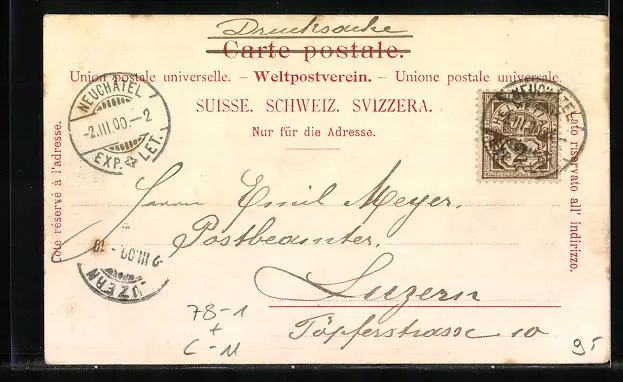 Drucksache
Carte postale.
Union postale universelle. – Weltpostverein. – Unione postale universale.
SUISSE. SCHWEIZ. SVIZZERA.
Nur für die Adresse.
Côté réservé à l'adresse.
Lato riservato all' indirizzo.
NEUCHÂTEL
-2.III.00.-2
EXP. LET.
NEUCHÂTEL
2
Herrn Emil Meyer.
Postbeamter.
Luzern
Töpferstrasse 10
LUZERN
2 III.00
78-1
+
C-N
95